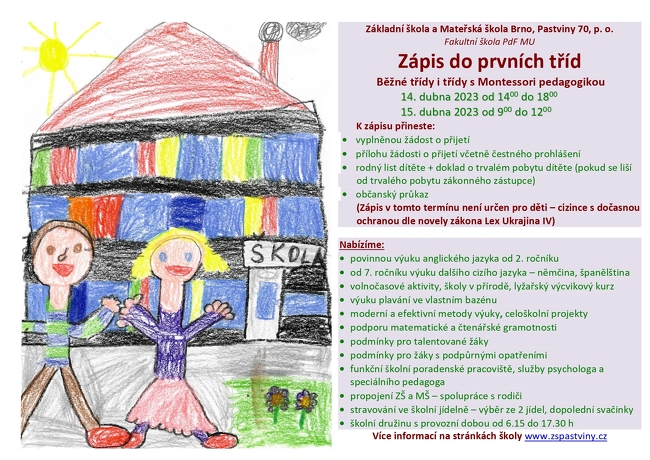 Základní škola a Mateřská škola Brno, Pastviny 70, p. o.
Fakultní škola PdF MU
Zápis do prvních tříd
Běžné třídy i třídy s Montessori pedagogikou
14. dubna 2023 od 14⁰⁰ do 18⁰⁰
15. dubna 2023 od 9⁰⁰ do 12⁰⁰
K zápisu přineste:
• vyplněnou žádost o přijetí
• přílohu žádosti o přijetí včetně čestného prohlášení
• rodný list dítěte + doklad o trvalém pobytu dítěte (pokud se liší
od trvalého pobytu zákonného zástupce)
• občanský průkaz
(Zápis v tomto termínu není určen pro děti – cizince s dočasnou
ochranou dle novely zákona Lex Ukrajina IV)
Nabízíme:
• povinnou výuku anglického jazyka od 2. ročníku
• od 7. ročníku výuku dalšího cizího jazyka – němčina, španělština
• volnočasové aktivity, školy v přírodě, lyžařský výcvikový kurz
• výuku plavání ve vlastním bazénu
• moderní a efektivní metody výuky, celoškolní projekty
• podporu matematické a čtenářské gramotnosti
• podmínky pro talentované žáky
• podmínky pro žáky s podpůrnými opatřeními
• funkční školní poradenské pracoviště, služby psychologa a
speciálního pedagoga
• propojení ZŠ a MŠ – spolupráce s rodiči
• stravování ve školní jídelně – výběr ze 2 jídel, dopolední svačinky
• školní družinu s provozní dobou od 6.15 do 17.30 h
Více informací na stránkách školy www.zspastviny.cz
ŠKOLA